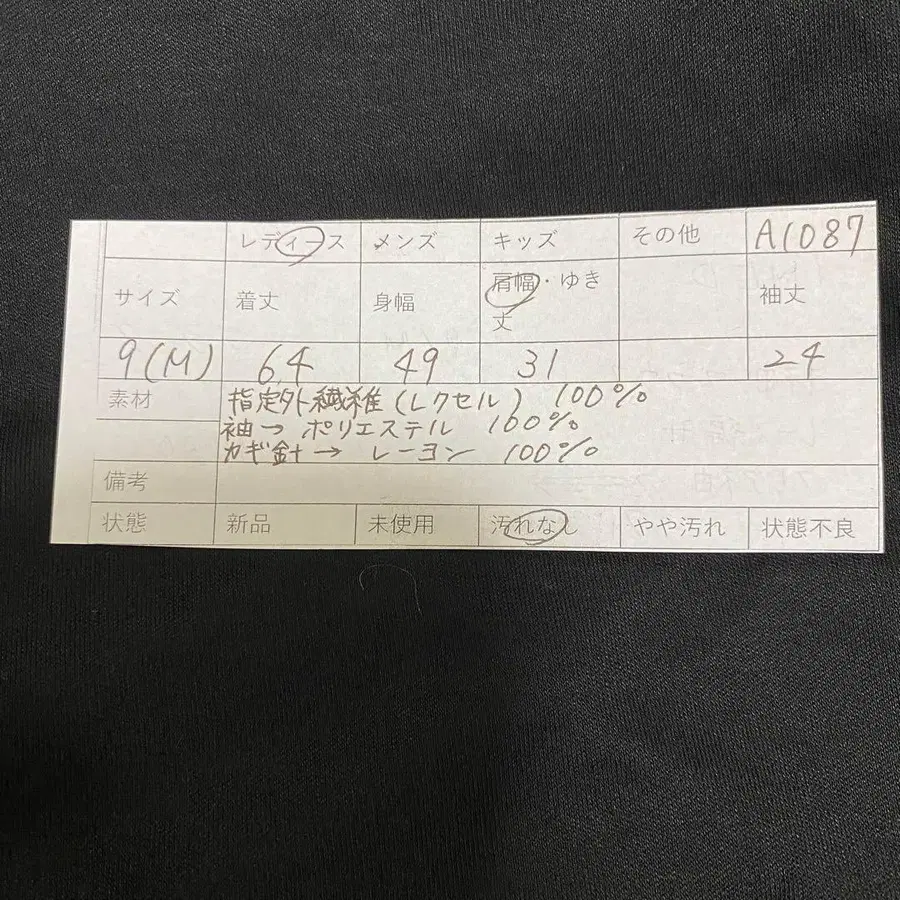 レディース メンズ キッズ その他 A1087
サイズ 着丈 身幅 肩幅・ゆき丈 袖丈
9(M) 64 49 31 24
素材 指定外繊維(レクセル) 100%
袖→ポリエステル 100%
カギ針→レーヨン 100%
備考
状態 新品 未使用 汚れなし やや汚れ 状態不良